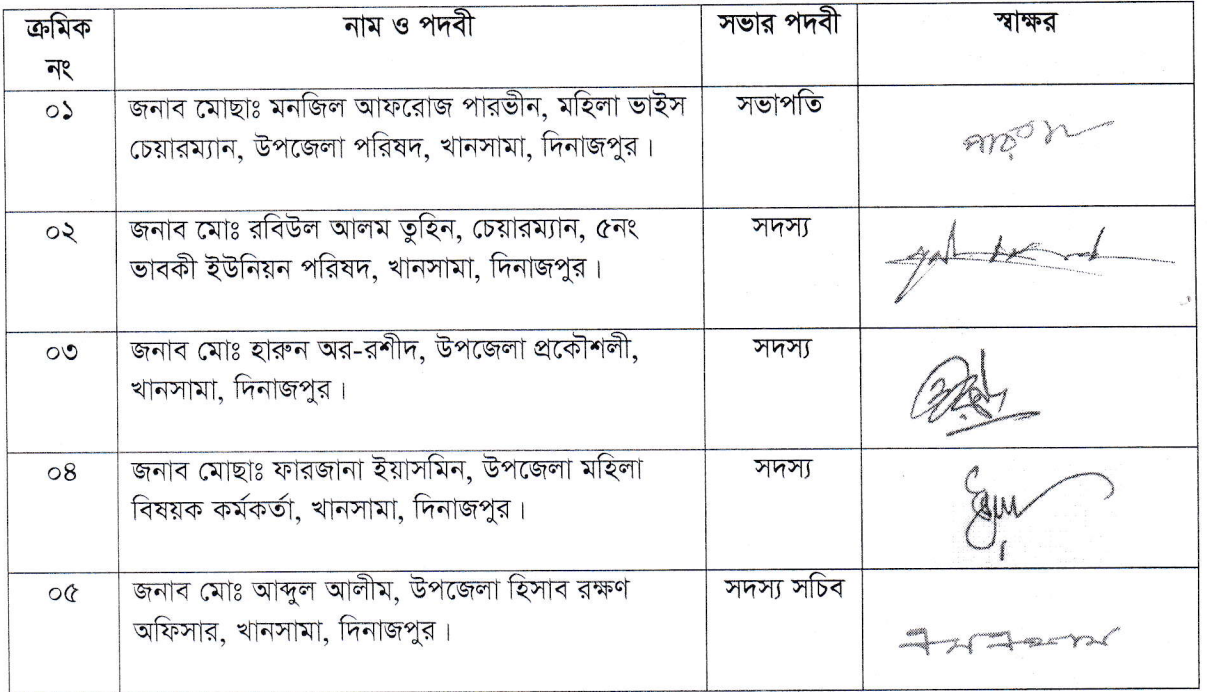 ক্রমিক নাম ও পদবী সভার পদবী স্বাক্ষর
নং
০১ জনাব মোছাঃ মনজিল আফরোজ পারভীন, মহিলা ভাইস সভাপতি
চেয়ারম্যান, উপজেলা পরিষদ, খানসামা, দিনাজপুর।
০২ জনাব মোঃ রবিউল আলম তুহিন, চেয়ারম্যান, ৫নং সদস্য
ভাবকী ইউনিয়ন পরিষদ, খানসামা, দিনাজপুর।
০৩ জনাব মোঃ হারুন অর-রশীদ, উপজেলা প্রকৌশলী, সদস্য
খানসামা, দিনাজপুর।
০৪ জনাব মোছাঃ ফারজানা ইয়াসমিন, উপজেলা মহিলা সদস্য
বিষয়ক কর্মকর্তা, খানসামা, দিনাজপুর।
০৫ জনাব মোঃ আব্দুল আলীম, উপজেলা হিসাব রক্ষণ সদস্য সচিব
অফিসার, খানসামা, দিনাজপুর।